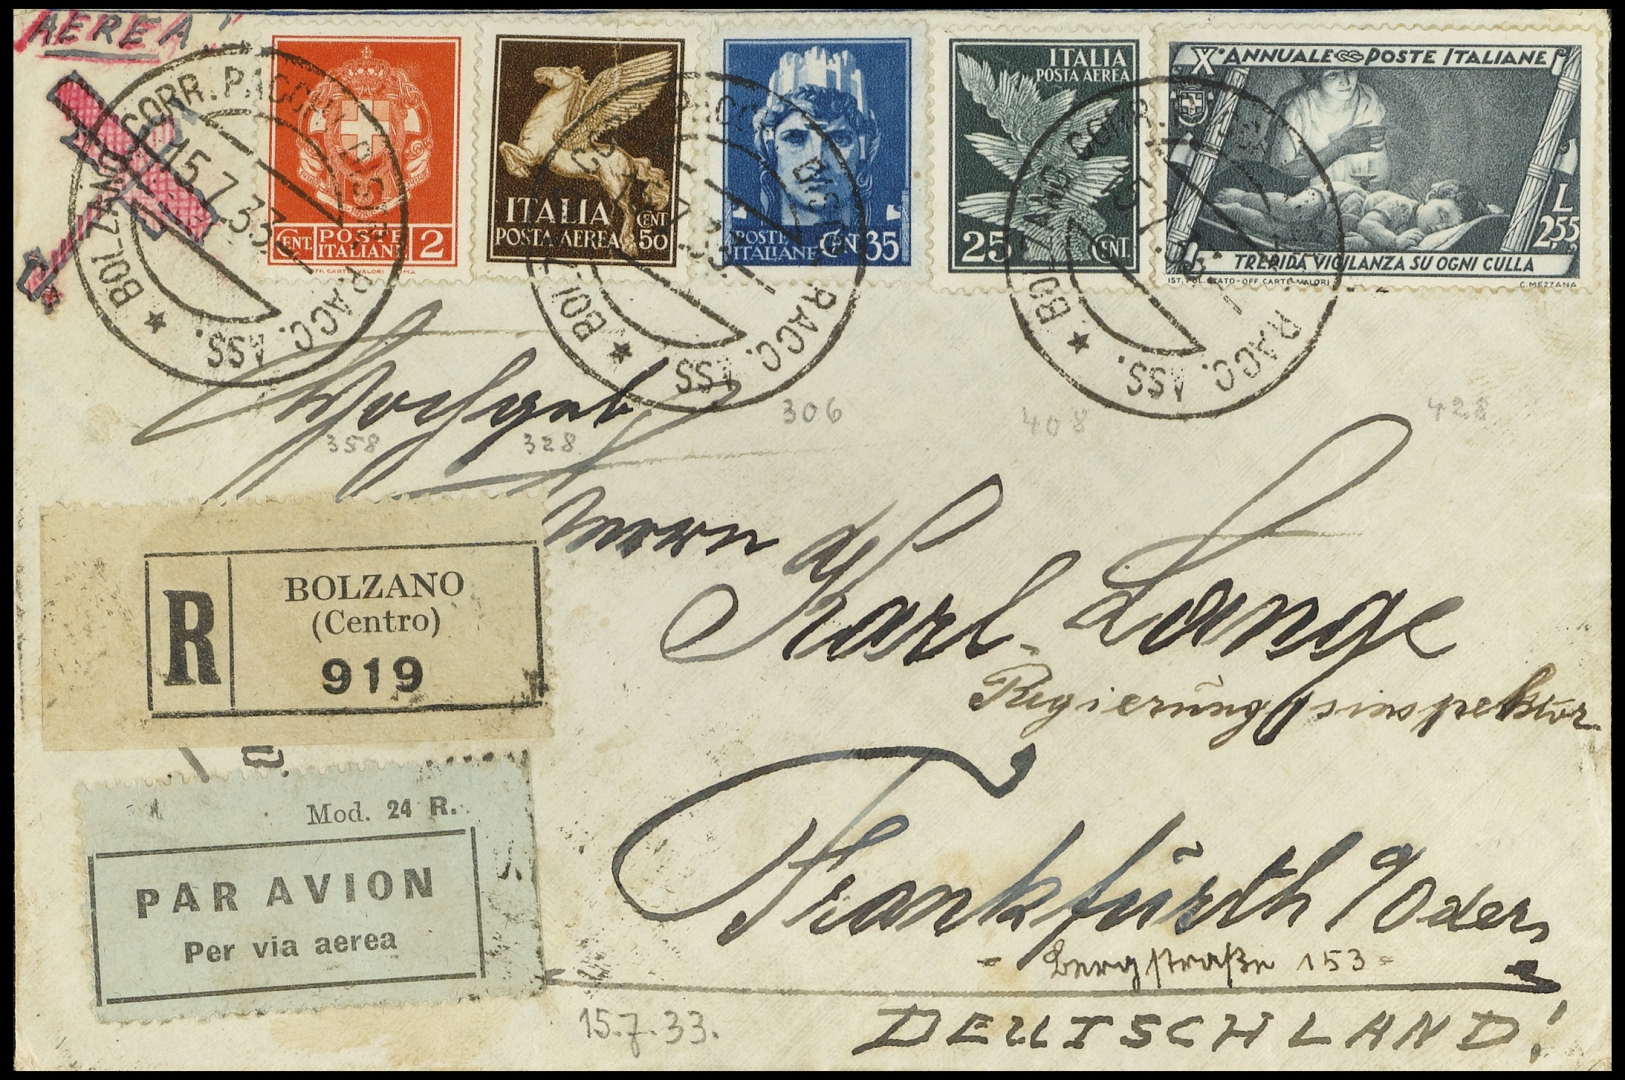 AEREA"
CORR. PACCHI DIST. RACC. ASS.
★ BOLZANO
15.7.33
POSTE ITALIANE
CENT. 2
IST. POL. STATO-OFF. CARTE-VALORI
ITALIA
POSTA AEREA
CENT 50
POSTE ITALIANE
CENT 35
ITALIA
POSTA AEREA
25 CENT.
X° ANNUALE POSTE ITALIANE
L 2,55
TREPIDA VIGILANZA SU OGNI CULLA
C. MEZZANA
Hochgeb.
358 328 306 408 428
Herrn
Karl Lange
Regierungsinspektor
R
BOLZANO
(Centro)
919
Mod. 24 R.
PAR AVION
Per via aerea
Frankfurth a/Oder,
- Bergstraße 153 -
15.7.33.
DEUTSCHLAND!